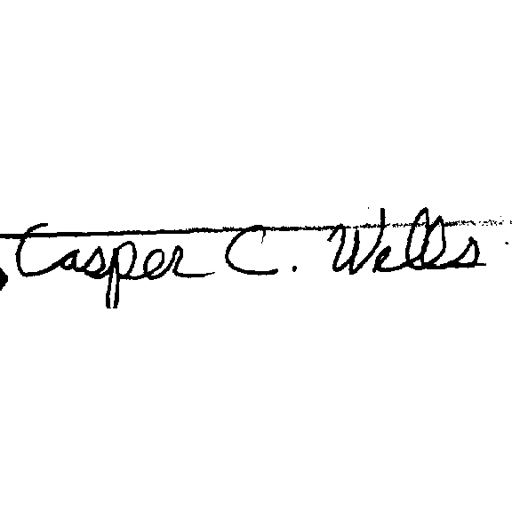 Casper C. Wells